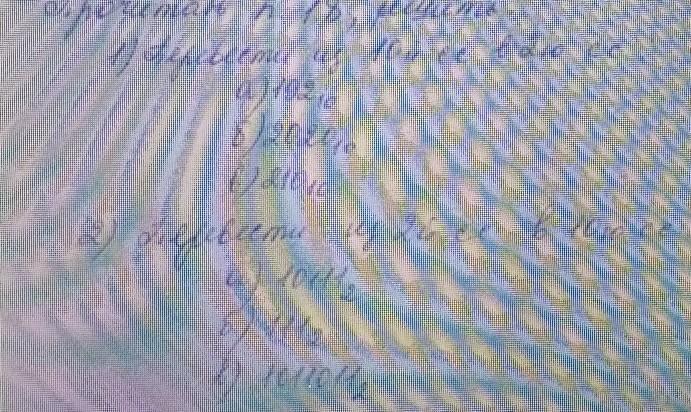 Прочитать п. 18, решить
1) Перевести из 10й сс в 2ю сс
а) 102₁₀
б) 2021₁₀
в) 210₁₀
2) Перевести из 2й сс в 10ю сс
а) 10111₂
б) 111₂
в) 1011011₂